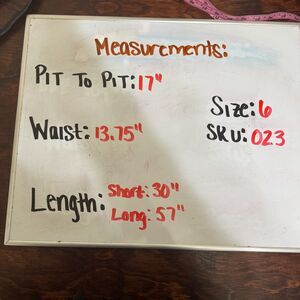 Measurements:
Pit To Pit: 17"
Size: 6
Waist: 13.75"
SKU: 023
Length: Short: 30"
Long: 57"